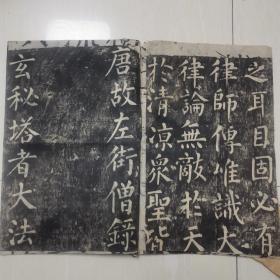 之耳目固必有
律師傳唯識大
律論無敵於天
於清涼衆聖皆
唐故左街僧錄
玄秘塔者大法